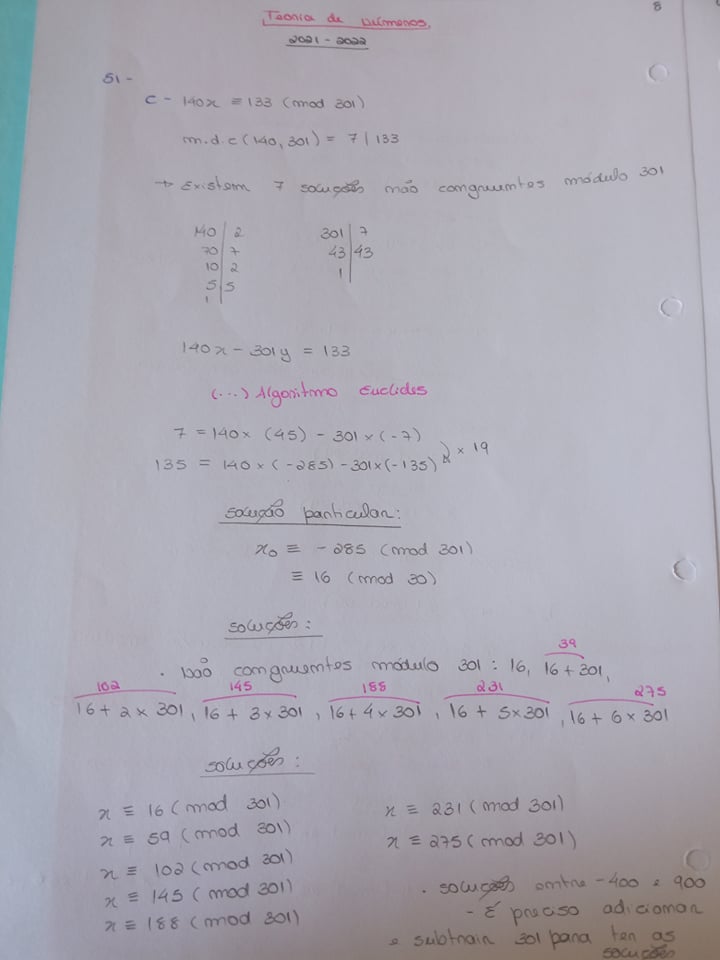 8
Teoria de Números.
2021 - 2022
51 -
c - 140x ≡ 133 (mod 301)
m.d.c (140, 301) = 7 | 133
→ Existem 7 soluções não congruentes módulo 301
140 | 2 301 | 7
70 | 7 43 | 43
10 | 2 1 |
5 | 5
1
140x - 301y = 133
(...) Algoritmo Euclides
7 = 140 × (45) - 301 × (-7)
135 = 140 × (-285) - 301 × (-135) × 19
solução particular:
x₀ ≡ - 285 (mod 301)
≡ 16 (mod 30)
soluções:
39
. não congruentes módulo 301 : 16, 16 + 301,
102 145 188 231 275
16 + 2 × 301, 16 + 3 × 301, 16 + 4 × 301, 16 + 5 × 301, 16 + 6 × 301
soluções:
x ≡ 16 (mod 301) x ≡ 231 (mod 301)
x ≡ 59 (mod 301) x ≡ 275 (mod 301)
x ≡ 102 (mod 301)
x ≡ 145 (mod 301)
x ≡ 188 (mod 301)
. soluções entre -400 e 900
- É preciso adicionar
e subtrair 301 para ter as
soluções